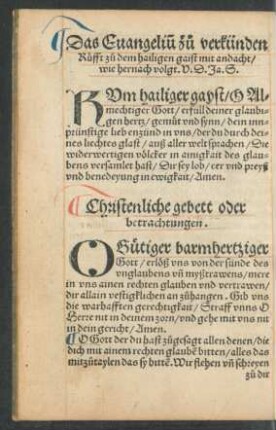 Das Euangeliū zů verkünden
Růfft zů dem hailigen gaist mit andacht/
wie hernach volgt. V. D. Ja. S.
KUm hailiger gayst/O Al-
mechtiger Gott/ erfüll deiner glaubi-
gen hertz/ gemüt vnd synn/ dein inn-
prünstige lieb enzünd in vns/ der du durch dei-
nes liechtes glast/ auß aller welt sprachen/ Die
widerwertigen völcker in ainigkeit des glau-
bens versamlet hast/ Dir sy lob/ eer vnd preyß
vnd benedeyung in ewigkait/ Amen.
Christenliche gebett oder
betrachtungen.
O Gütiger barmhertziger
Gott/ erlöß vns von der sünde des
vnglaubens vñ myßtrawens/ mere
in vns ainen rechten glauben vnd vertrawen/
dir allain vestigklichen an zůhangen. Gib vns
die warhafften gerechtigkait/ Straff vnns O
Herre nit in deinem zorn/ vnd gehe mit vns nit
in dein gericht/ Amen.
O Gott der du hast zůgesagt allen denen/ die
dich mit ainem rechten glaubē bitten/ alles das
mitzůtaylen das sy bittē. Wir flehen vñ schreyen
zů dir